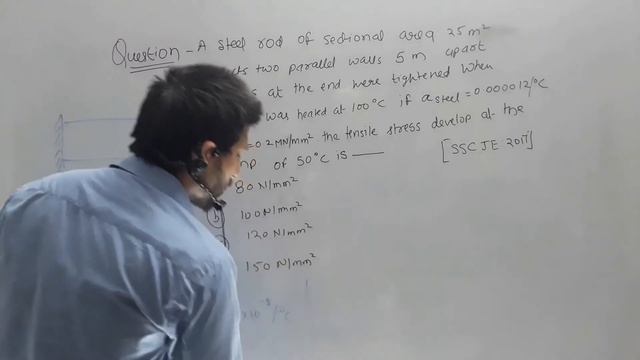 Question - A steel rod of sectional area 25 m²
two parallel walls 5 m apart
at the end were tightened when
was heated at 100°C if α steel = 0.000012/°C
= 0.2 MN/mm² the tensile stress develop at the
of 50°C is ——
[SSC JE 2017]
80 N/mm²
b 100 N/mm²
120 N/mm²
150 N/mm²
/°C